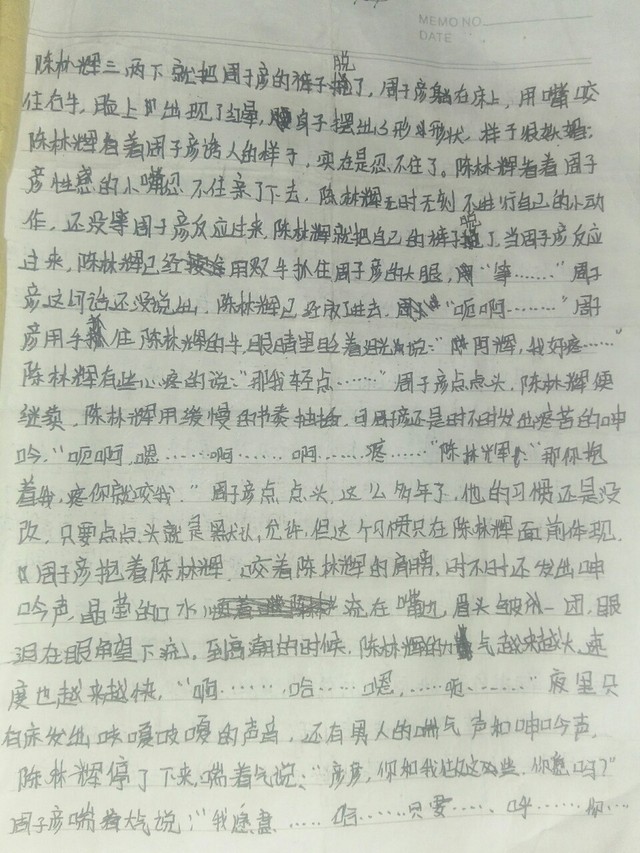 MEMO NO.
DATE
陈林辉三两下就把周子彦的裤子脱了，周子彦躺在床上，用嘴咬
住右手，脸上出现了红晕，身子摆出S形形状，样子很
陈林辉看着周子彦诱人的样子，实在是忍不住了。陈林辉看着周子
彦性感的小嘴忍不住亲了下去，陈林辉无时无刻不进行自己的小动
作，还没等周子彦反应过来，陈林辉就把自己的裤子脱了，当周子彦反应
过来，陈林辉已经用双手抓住周子彦的大腿，"等……"周子
彦这句话还没说出，陈林辉已经进去，"呃啊………"周子
彦用手抓住陈林辉的手，眼睛里说："阿辉，我好疼……"
陈林辉有些心疼的说："那我轻点……"周子彦点点头，陈林辉便
继续，陈林辉用缓慢的节奏抽插，可周子彦还是时不时发出疼苦的呻
吟，"呃啊，嗯……啊……啊……疼……"陈林辉："那你抱
着我，疼你就咬我。"周子彦点点头，这么多年了，他的习惯还是没
改，只要点点头就是默认，允许，但这个习惯只在陈林辉面前体现，
周子彦抱着陈林辉，咬着陈林辉的肩膀，时不时还发出呻
吟声，晶莹的口水流在嘴边，眉头皱成一团，眼
泪在眼角望下流，到高潮的时候，陈林辉的力气越来越大，速
度也越来越快，"啊……哈……嗯……呃……"夜里只
有床发出吱嘎吱嘎的声音，还有男人的喘气声和呻吟声，
陈林辉停了下来，喘着气说："彦彦，你和我做这些，你愿吗？"
周子彦喘着大气说："我愿意……哈……只要……呼……你…